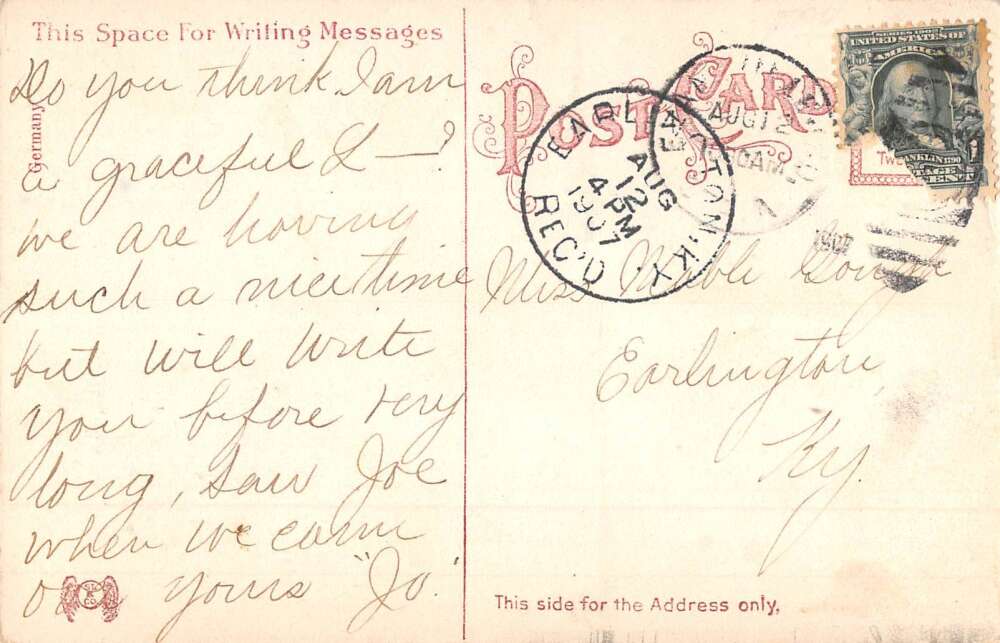 This Space For Writing Messages
Do you think I am
a graceful L—?
we are having
such a nice time
but will write
you before very
long, saw Joe
when we came
yours "Jo"
Germany
POST CARD
EARLINGTON, KY.
AUG
12
4 PM
1907
REC'D.
AUG 12
SERIES 1902
UNITED STATES OF
AMERICA
Miss
Earlington,
Ky.
This side for the Address only.